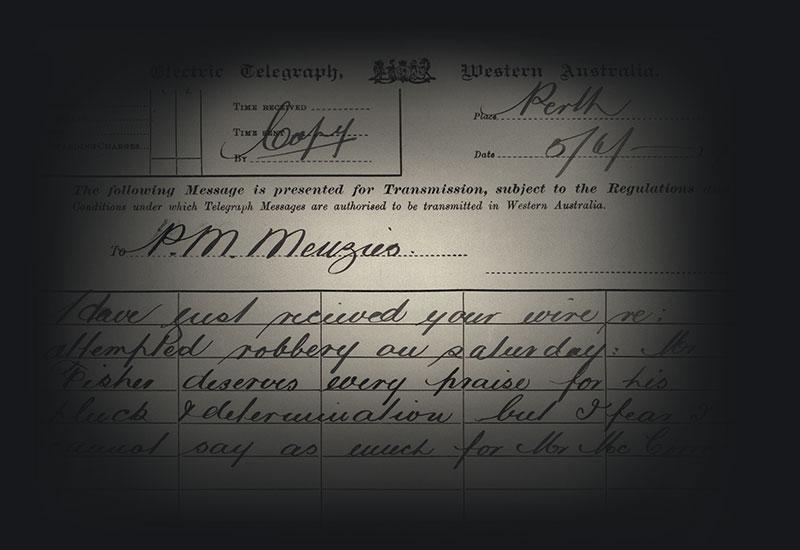 Electric Telegraph, Western Australia.
TIME RECEIVED
Place Perth
TIME SENT Copy
By
Date 5/6/
The following Message is presented for Transmission, subject to the Regulations
Conditions under which Telegraph Messages are authorised to be transmitted in Western Australia.
To P.M. Menzies.
Have just recieved your wire re:
attempted robbery on saturday: Mr
Fisher deserves every praise for his
pluck & determination but I fear I
cannot say as much for Mr Mc